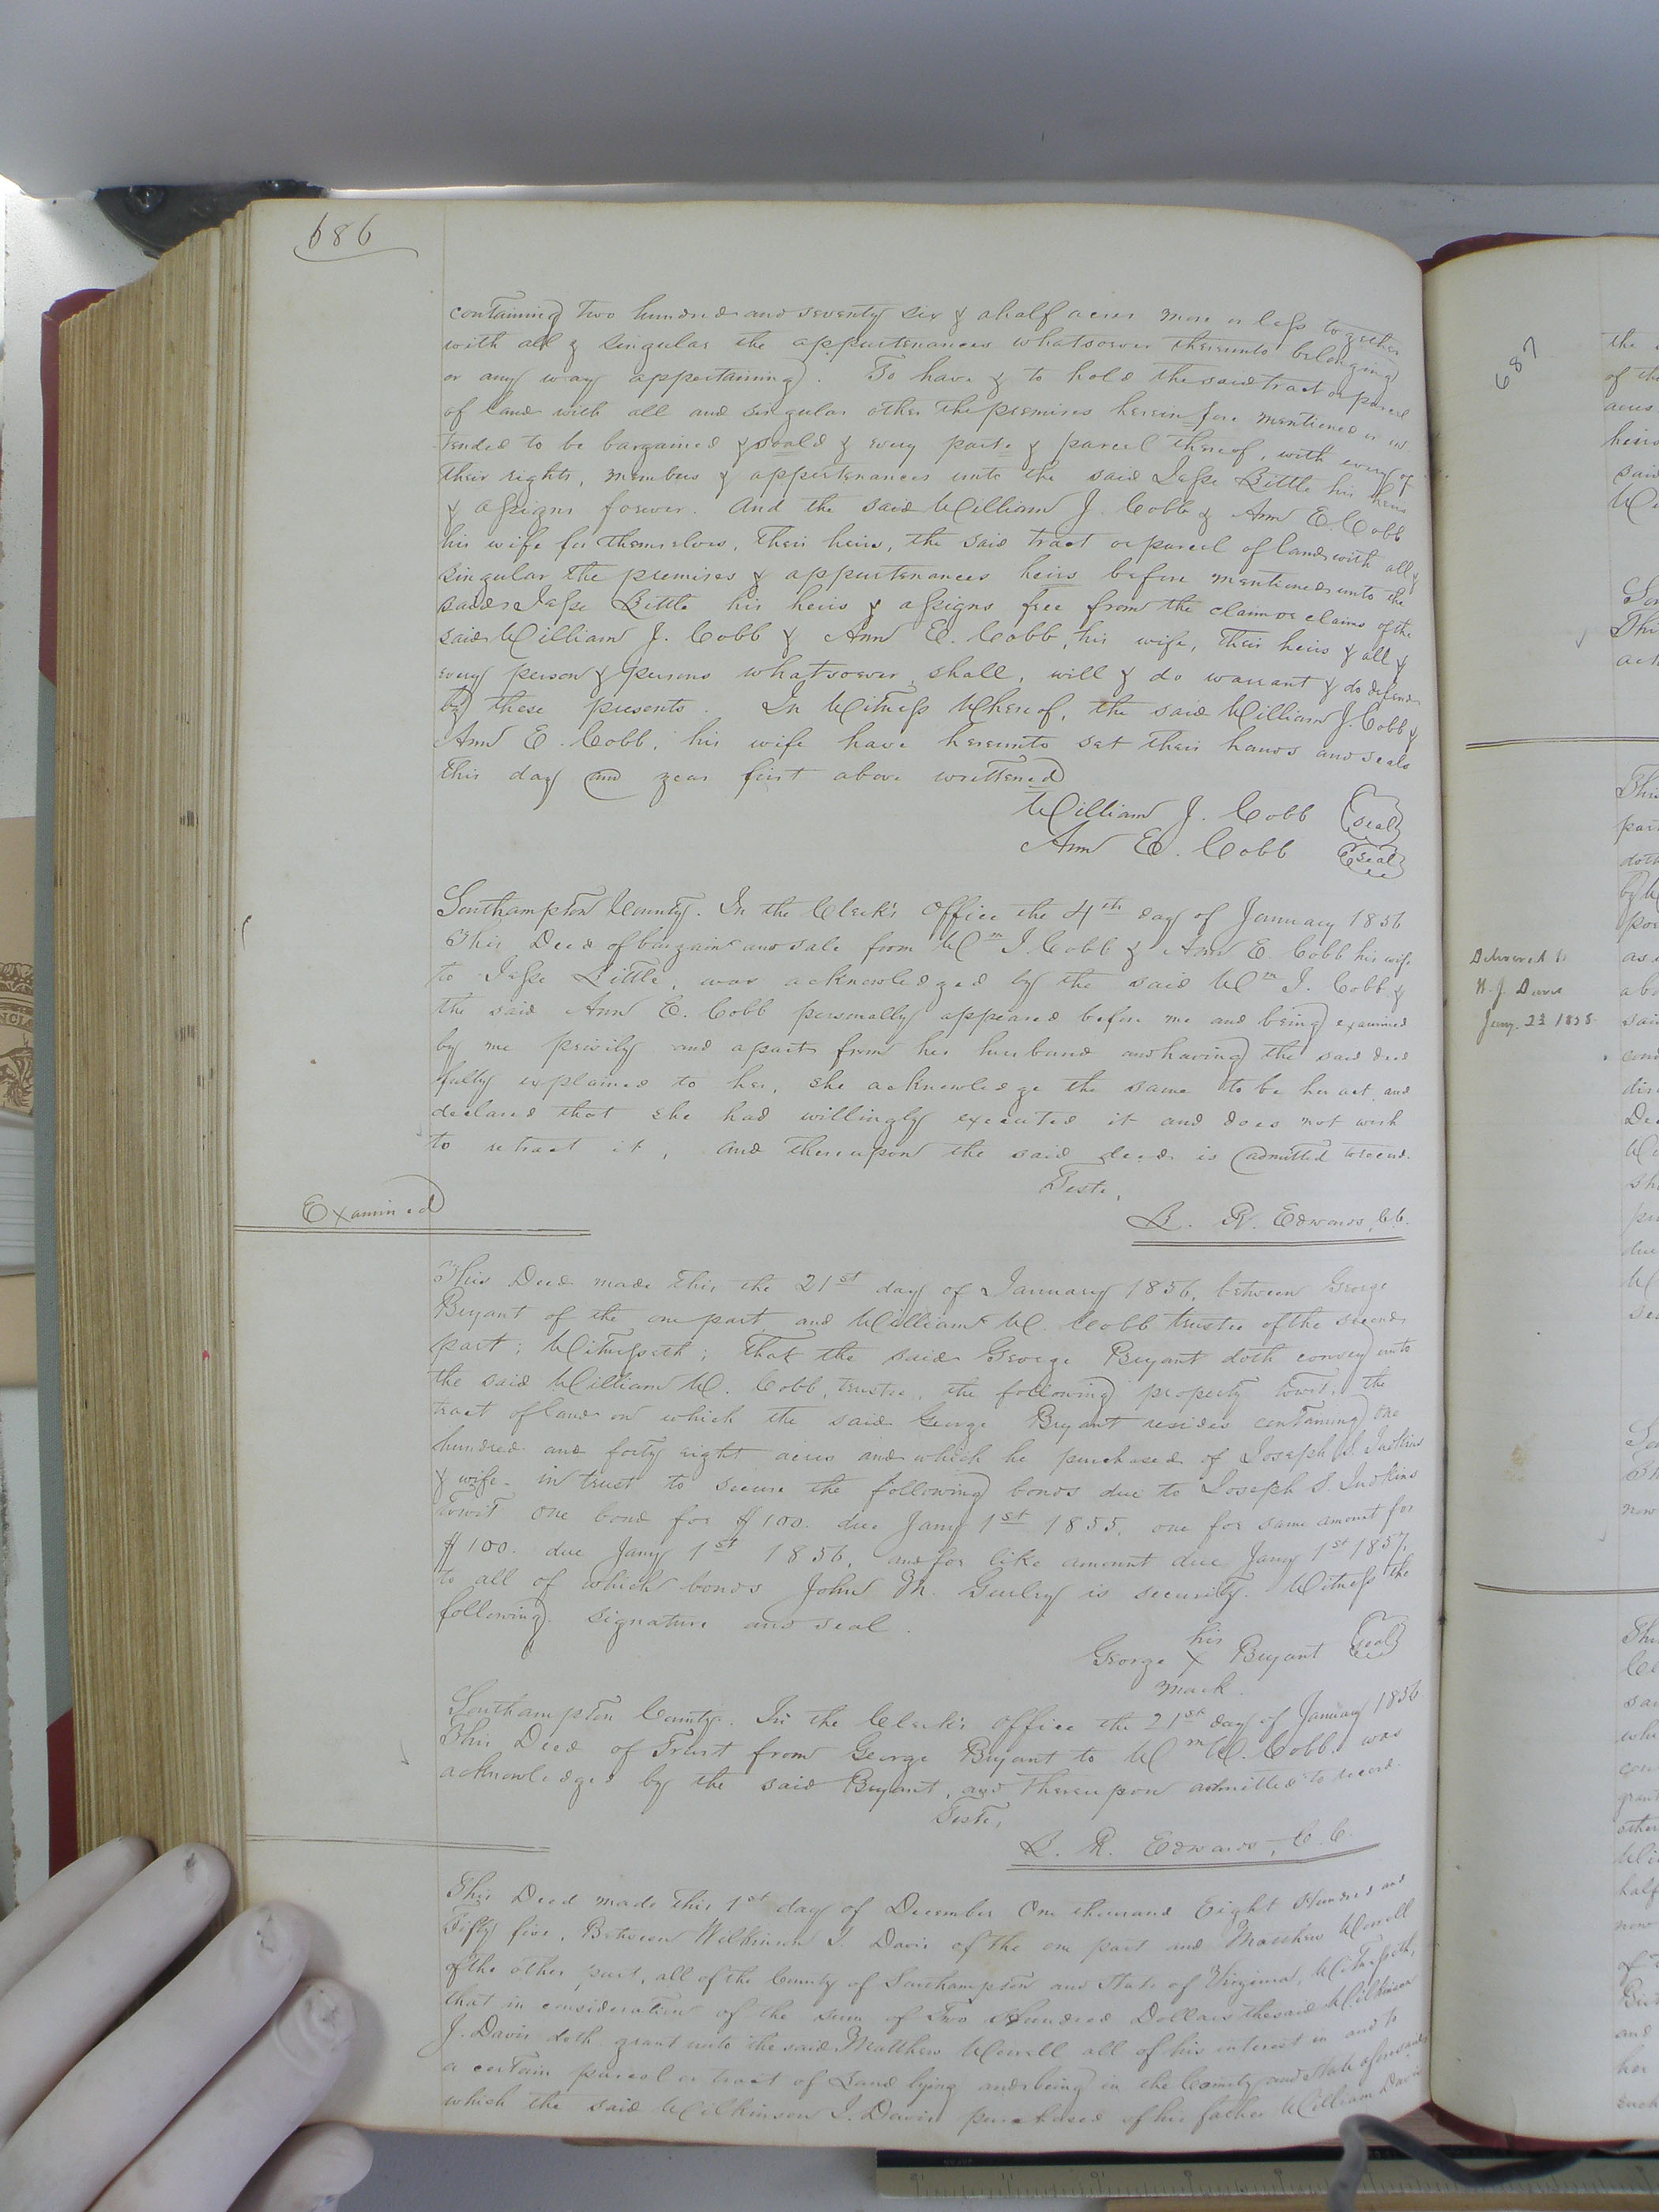 686
containing two hundred and seventy six & a half acres more or less together
with all & singular the appurtenances whatsoever thereunto belonging
or any way appertaining. To have & to hold the said tract or parcel
of land with all and singular other the premises herein fore mentioned or in
tended to be bargained & sould & every parte & parcel thereof, with every of
their rights, members & appertenances unto the said Jesse Little his heirs
& assigns forever. And the said William J. Cobb & Ann E. Cobb
his wife for themselves, their heirs, the said tract or parcel of land with all &
singular the premises & appurtenances heirs before mentioned unto the
said Jesse Little his heirs & assigns free from the claim or claims of the
said William J. Cobb & Ann E. Cobb, his wife, their heirs & all &
every person & persons whatsoever, shall, will & do warrant & do defend
by these presents. In Witness Whereof, the said William J. Cobb &
Ann E. Cobb, his wife have hereunto set their hands and seals
this day and year first above writtened
William J. Cobb seal
Ann E. Cobb seal
Southampton County. In the Clerk's Office the 4th day of January 1856
This Deed of bargain and sale from Wm J. Cobb & Ann E. Cobb his wife
to Jesse Little, was acknowledged by the said Wm J. Cobb &
the said Ann E. Cobb personally appeared before me and being examined
by me privily and apart from her husband and having the said deed
fully explained to her, she acknowledge the same to be her act, and
declared that she had willingly executed it and does not wish
to retract it, and thereupon the said deed is admitted to record.
Teste,
Examined
L. R. Edwards, C.C.
This Deed made this the 21st day of January 1856, between George
Bryant of the one part and William W. Cobb trustee of the second
part; Witnesseth; That the said George Bryant doth convey unto
the said William W. Cobb, trustee, the following property towit, the
tract of land on which the said George Bryant resides containing one
hundred and forty eight acres and which he purchased of Joseph S. Judkins
& wife. in trust to secure the following bonds due to Joseph S. Judkins
towit one bond for $100. due Jany 1st 1855, one for same amount for
$100. due Jany 1st 1856, and for like amount due Jany 1st 1857,
to all of which bonds John M. Gurley is security. Witness the
following signature and seal.
his
George X Bryant seal
mark.
Southampton County. In the Clerk's Office the 21st day of January 1856
This Deed of Trust from George Bryant to Wm W. Cobb, was
acknowledged by the said Bryant, and thereupon admitted to record.
Teste,
L. R. Edwards, C.C.
This Deed made this 1st day of December One thousand Eight Hundred and
Fifty five, Between Wilkinson J. Davis of the one part and Matthew Worrell
of the other part, all of the County of Southampton and State of Virginia, Witnesseth,
that in consideration of the sum of Two Hundred Dollars the said Wilkinson
J. Davis doth grant unto the said Matthew Worrell all of his interest in and to
a certain parcel or tract of Land lying and being in the County and State aforesaid
which the said Wilkinson J. Davis purchased of his father William Davis
687
Delivered to
W. J. Davis
Jany. 23 1858
the
of the
acres
heirs
said